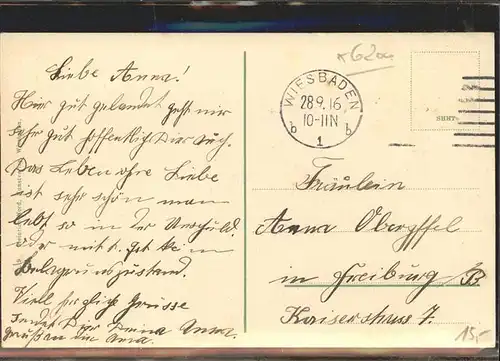 Liebe Anna!
Hier gut gelandet geht mir
sehr gut hoffentlich Dir auch.
Das Leben ohne Liebe
ist sehr schön man
lebt so in der Unschuld
oder mit
Belagerungszustand.
Viel herzliche Grüsse
sendet Dir Deine Anna.
WIESBADEN
28.9.16
10-11N
b 1 b
Fräulein
Anna
in Freiburg /B
Kaiserstrasse 7.
15,-